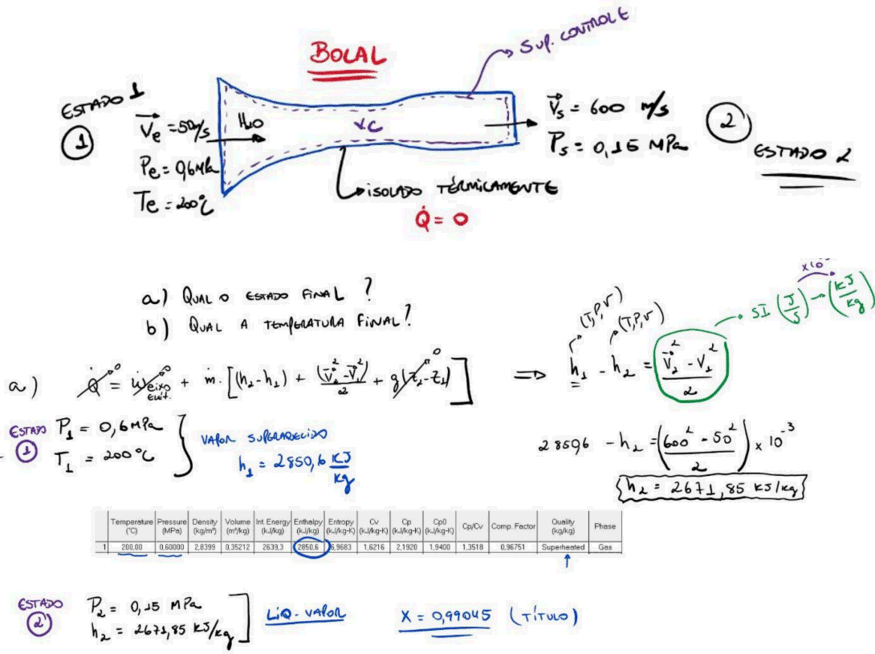 BOCAL
SUP. CONTROLE
ESTADO 1
1
V⃗e = 50 m/s
Pe = 0,6 MPa
Te = 200°C
H₂O
VC
V⃗s = 600 m/s
Ps = 0,15 MPa
2
ESTADO 2
ISOLADO TÉRMICAMENTE
Q̇ = 0
a) QUAL O ESTADO FINAL ?
b) QUAL A TEMPERATURA FINAL ?
a) Q̇ = Ẇeixo + ṁ · [(h₂-h₁) + (V⃗₂² - V⃗₁²)/2 + g(z₂-z₁)]
0 0 0
⟹ h₁ - h₂ = (V⃗₂² - V₁²)/2
(T,P,v) (T,P,v)
SI (J/S) → (kJ/kg)
ESTADO 1
P₁ = 0,6 MPa
T₁ = 200°C
VAPOR SUPERAQUECIDO
h₁ = 2850,6 kJ/kg
2850,6 - h₂ = ((600² - 50²)/2) x 10⁻³
h₂ = 2671,85 kJ/kg
Temperature (°C) Pressure (MPa) Density (kg/m³) Volume (m³/kg) Int. Energy (kJ/kg) Enthalpy (kJ/kg) Entropy (kJ/kg-K) Cv (kJ/kg-K) Cp (kJ/kg-K) Cp0 (kJ/kg-K) Cp/Cv Comp. Factor Quality (kg/kg) Phase
1 200,00 0,60000 2,8399 0,35212 2639,3 2850,6 6,9683 1,6216 2,1920 1,9400 1,3518 0,96751 Superheated Gas
ESTADO 2
P₂ = 0,15 MPa
h₂ = 2671,85 kJ/kg
LIQ-VAPOR
X = 0,99045 (TÍTULO)